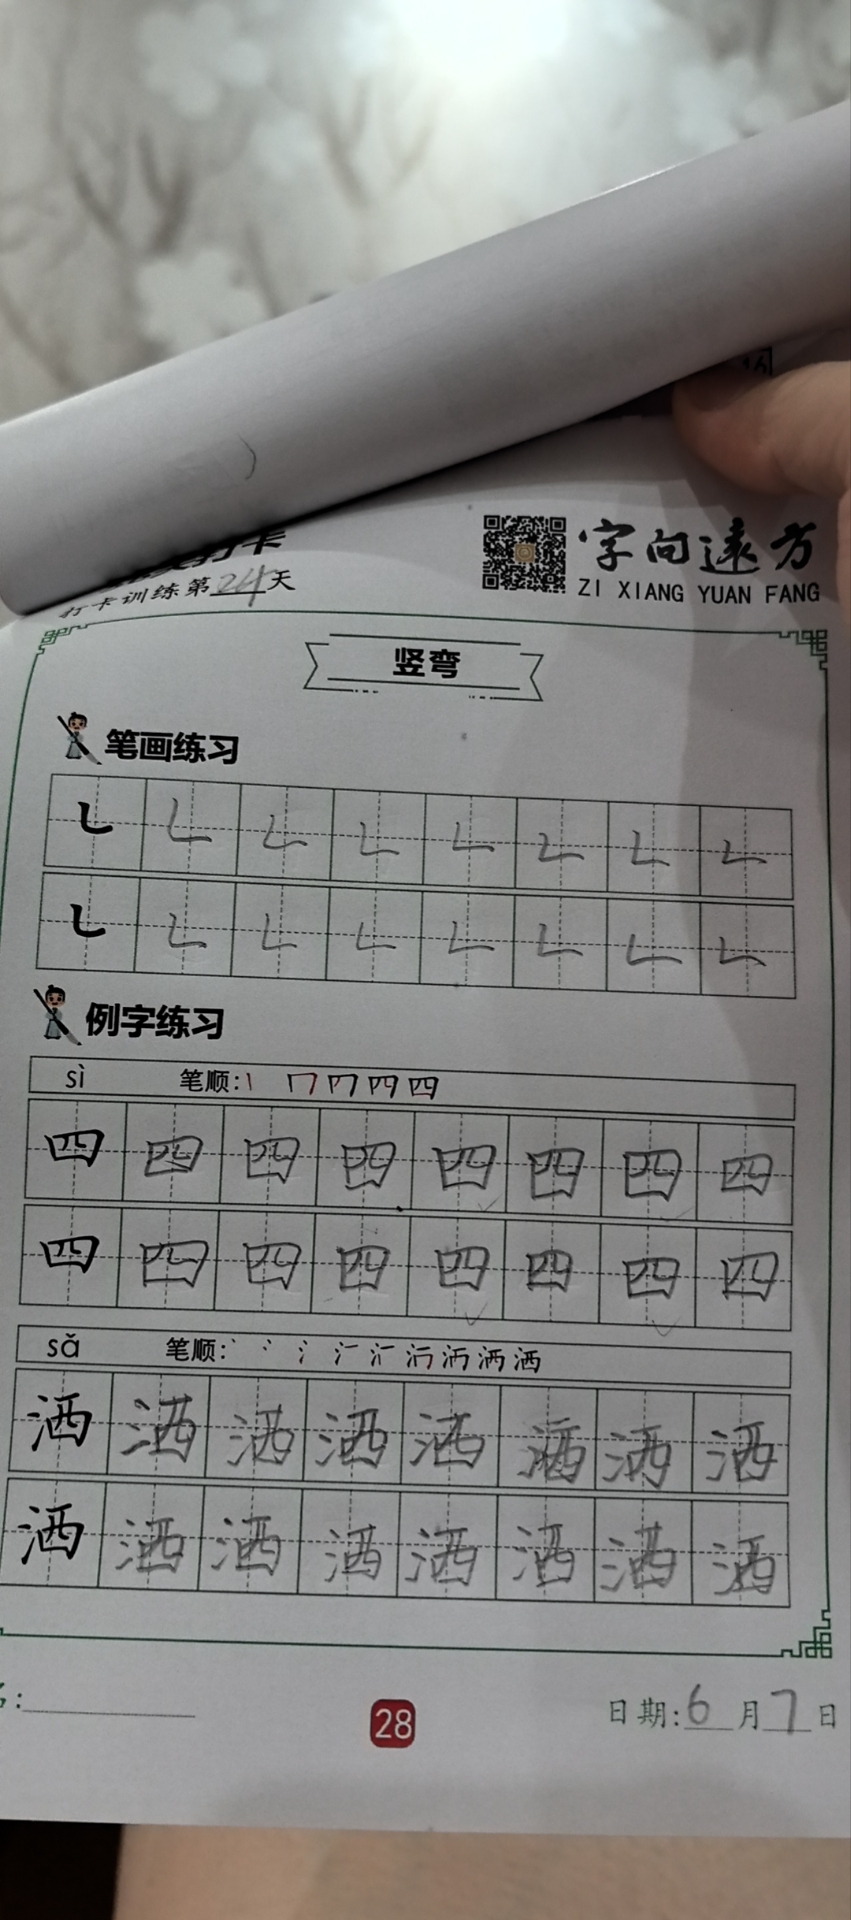 打卡
字向遠方
打卡训练第24天
ZI XIANG YUAN FANG
竖弯
笔画练习
例字练习
sì 笔顺:
四 四 四 四 四 四 四 四
四 四 四 四 四 四 四 四
sǎ 笔顺:
洒 洒 洒 洒 洒 洒 洒 洒
洒 洒 洒 洒 洒 洒 洒 洒
28
日期:6月7日